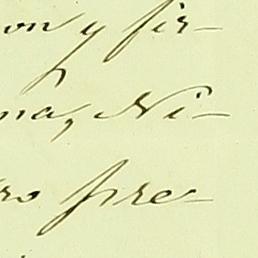 on y fir-
ma, Ni-
ro pre-